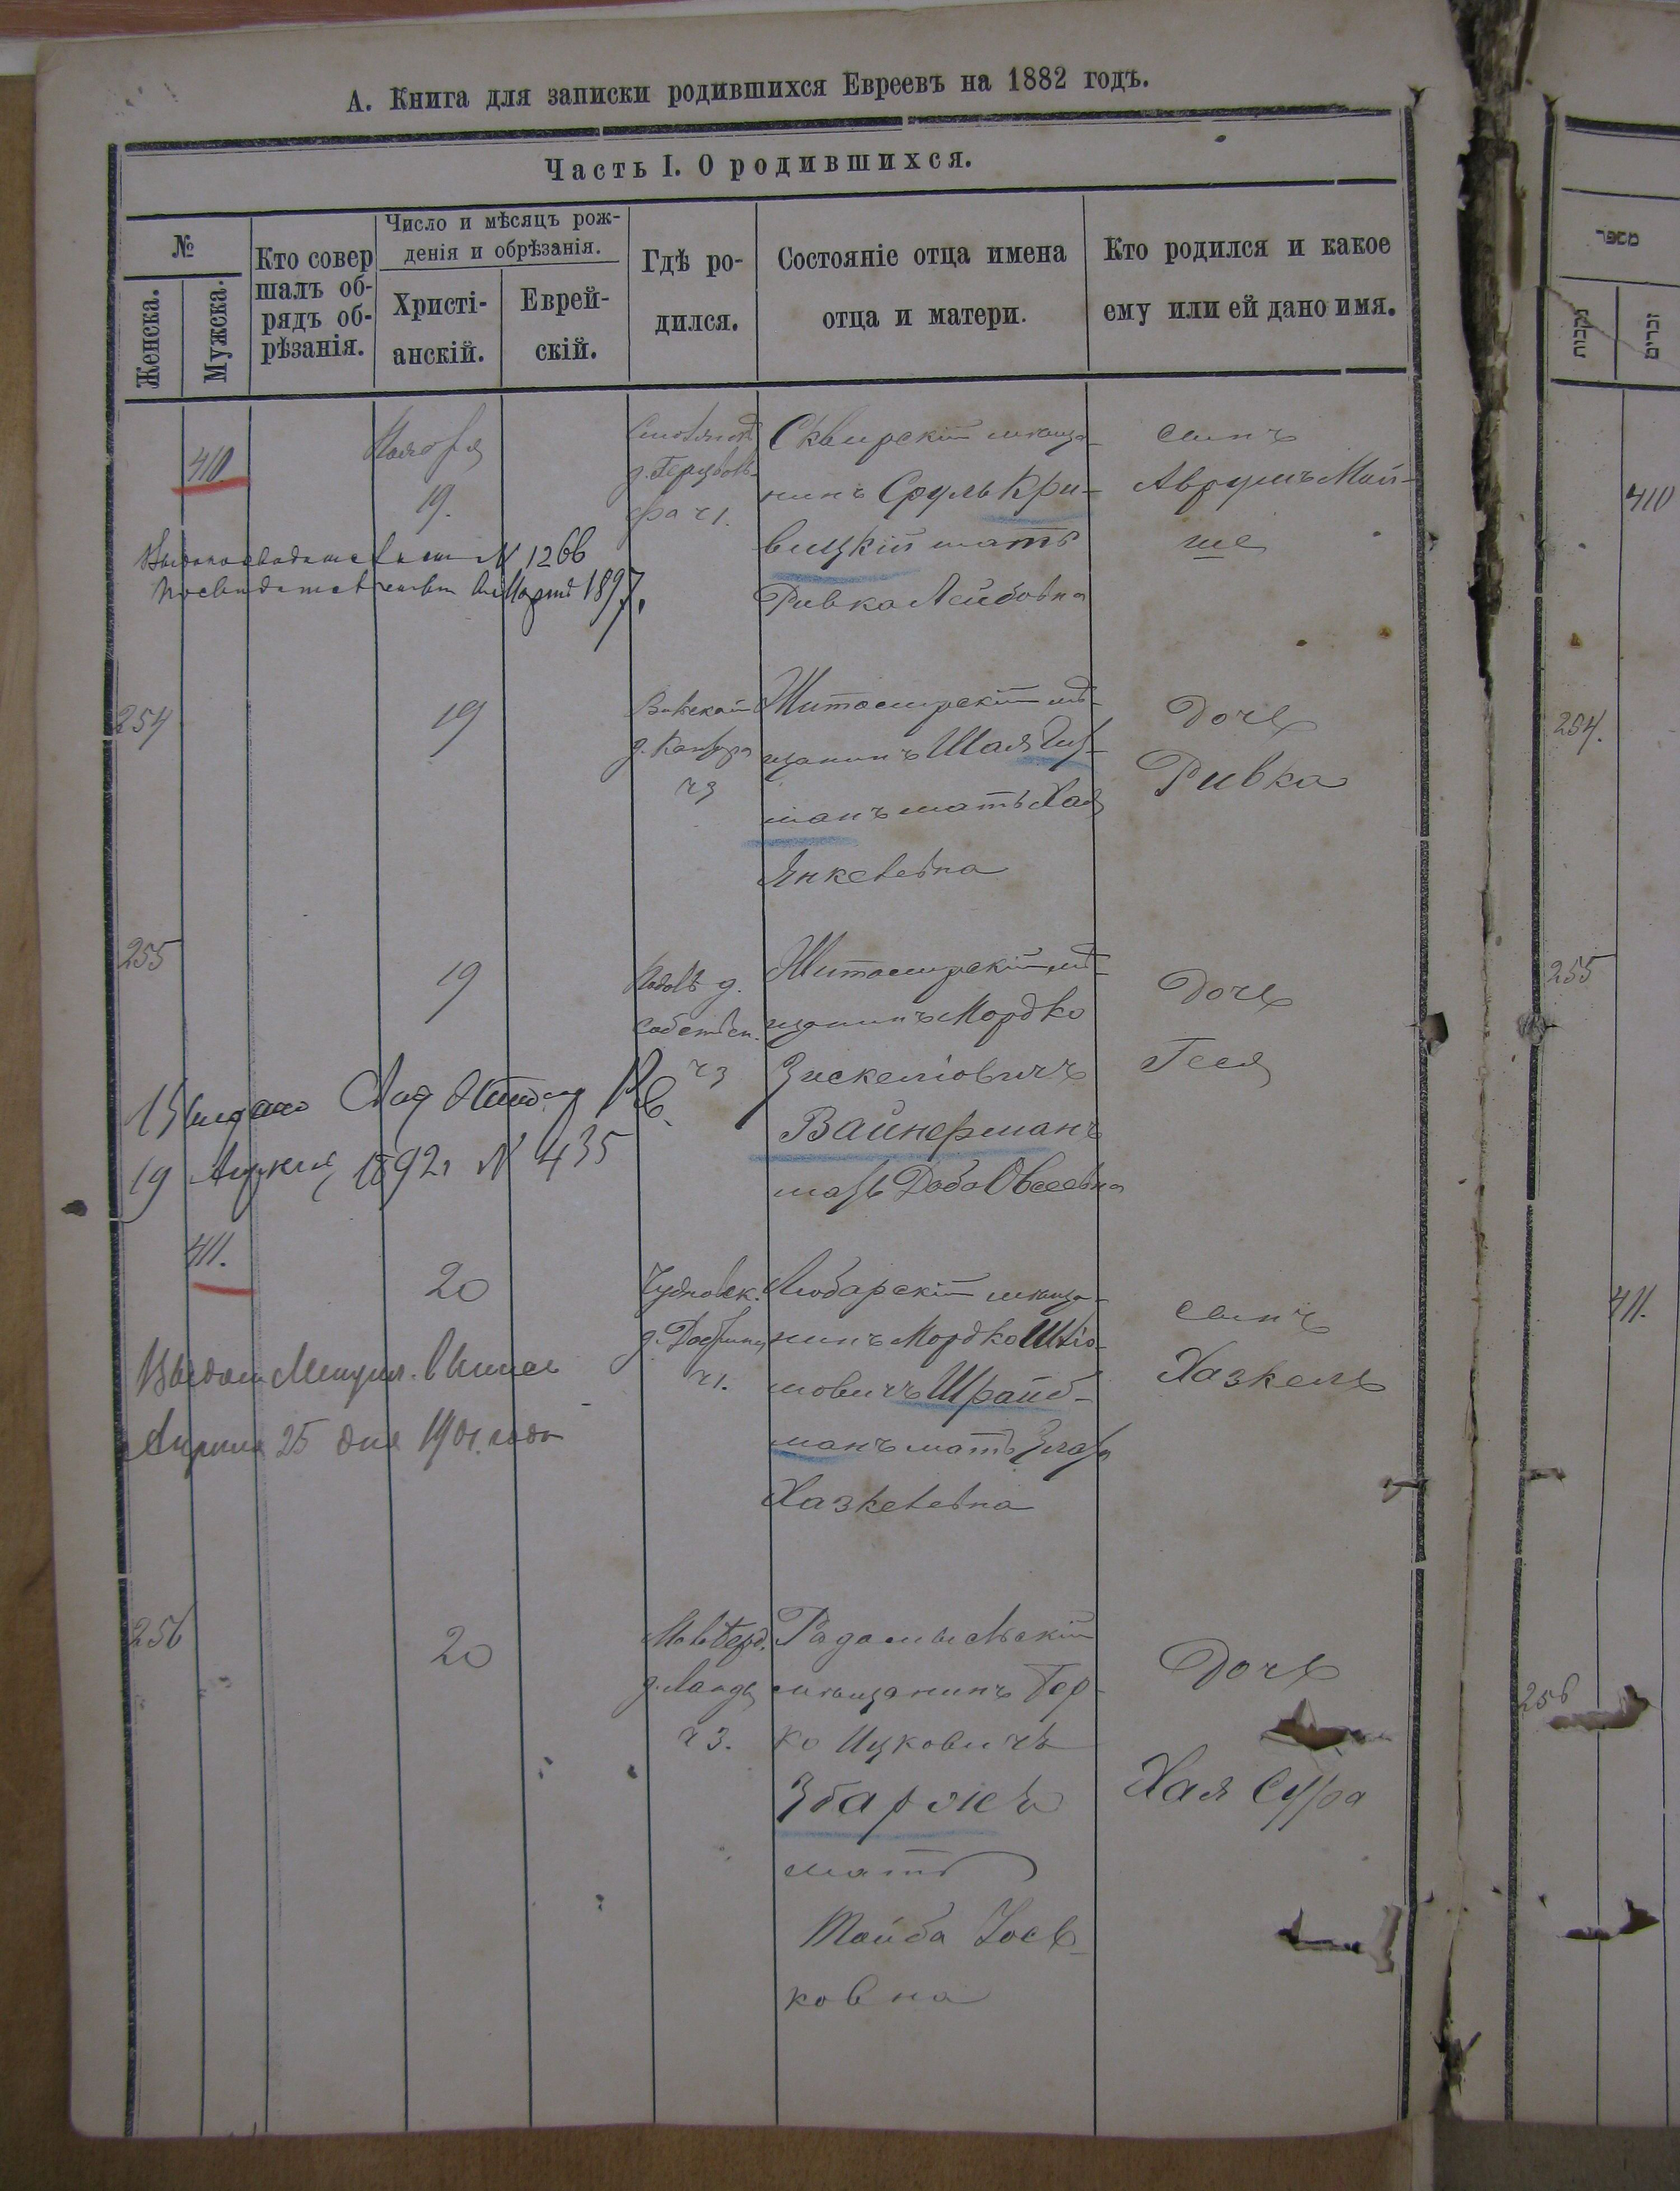 А. Книга для записки родившихся Евреевъ на 1882 годъ.
Часть I. О родившихся.
№
Женска.
Мужска.
Кто совер
шалъ об-
рядъ об-
рѣзанія.
Число и мѣсяцъ рож-
денія и обрѣзанія.
Христі-
анскій.
Еврей-
скій.
Гдѣ ро-
дился.
Состояніе отца имена
отца и матери.
Кто родился и какое
ему или ей дано имя.
410.
Ноября
19.
ч 1.
Сквирскій мѣща-
нинъ Сруль Кри-
вицкій мать
Ривка Лейбовна
сынъ
Аврумъ Мой-
ше
№ 1266
1897,
254
19
д.
ч 3
Житомирскій мѣ-
щанинъ Шая
манъ мать Хая
Янкелевна
Дочь
Ривка
255
19
д.
Собствен.
ч 3
Житомирскій мѣ-
щанинъ Мордко
Зискелiовичъ
Вайнерманъ
мать Доба Овсеевна
Дочь
Геся
19 1892 г № 435
411.
20
Чудновск.
д.
ч 1.
Любарскій мѣща-
нинъ Мордко Шлiо-
мовичъ Шрайб-
манъ мать Злата
Хазкелевна
сынъ
Хазкель
Апреля 25 дня 1901 года
256
20
д. Ланда
ч 3.
Радомысльскій
мѣщанинъ Гер-
ко Ицковичъ
Збаржъ
мать
Тайба Іось-
ковна
Дочь
Хая Сура
מספר
נקבות
זכרים
410
254.
255
411.
256